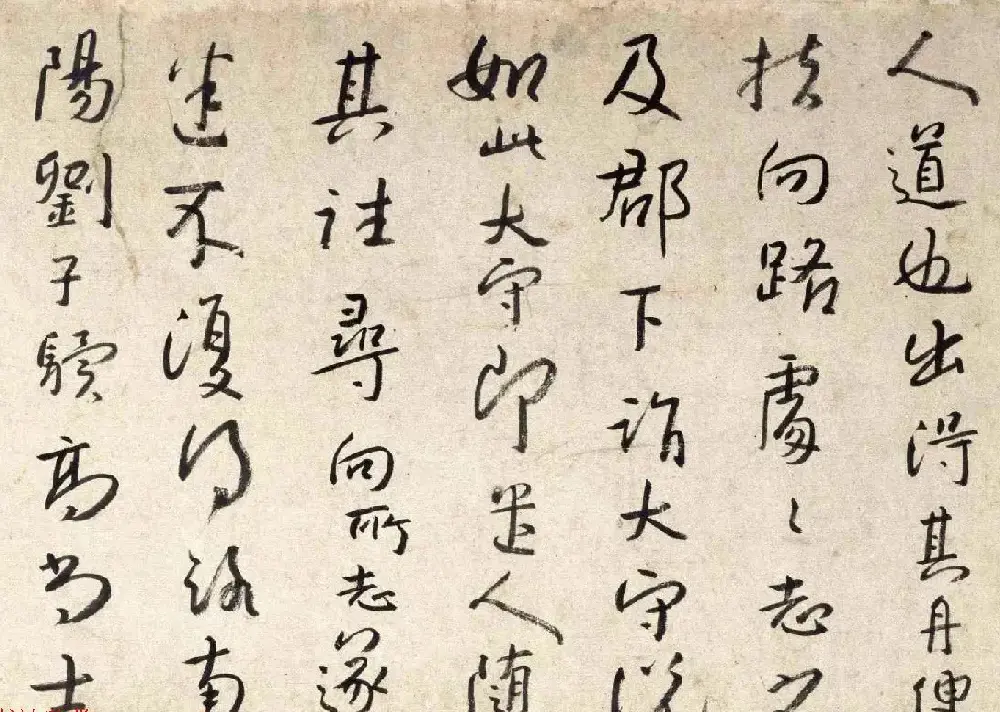 人道也出得其舟便
扶向路處〻志之
及郡下詣大守說
如此大守即遣人随
其往尋向所志遂
迷不復得路南
陽劉子驥高尚士